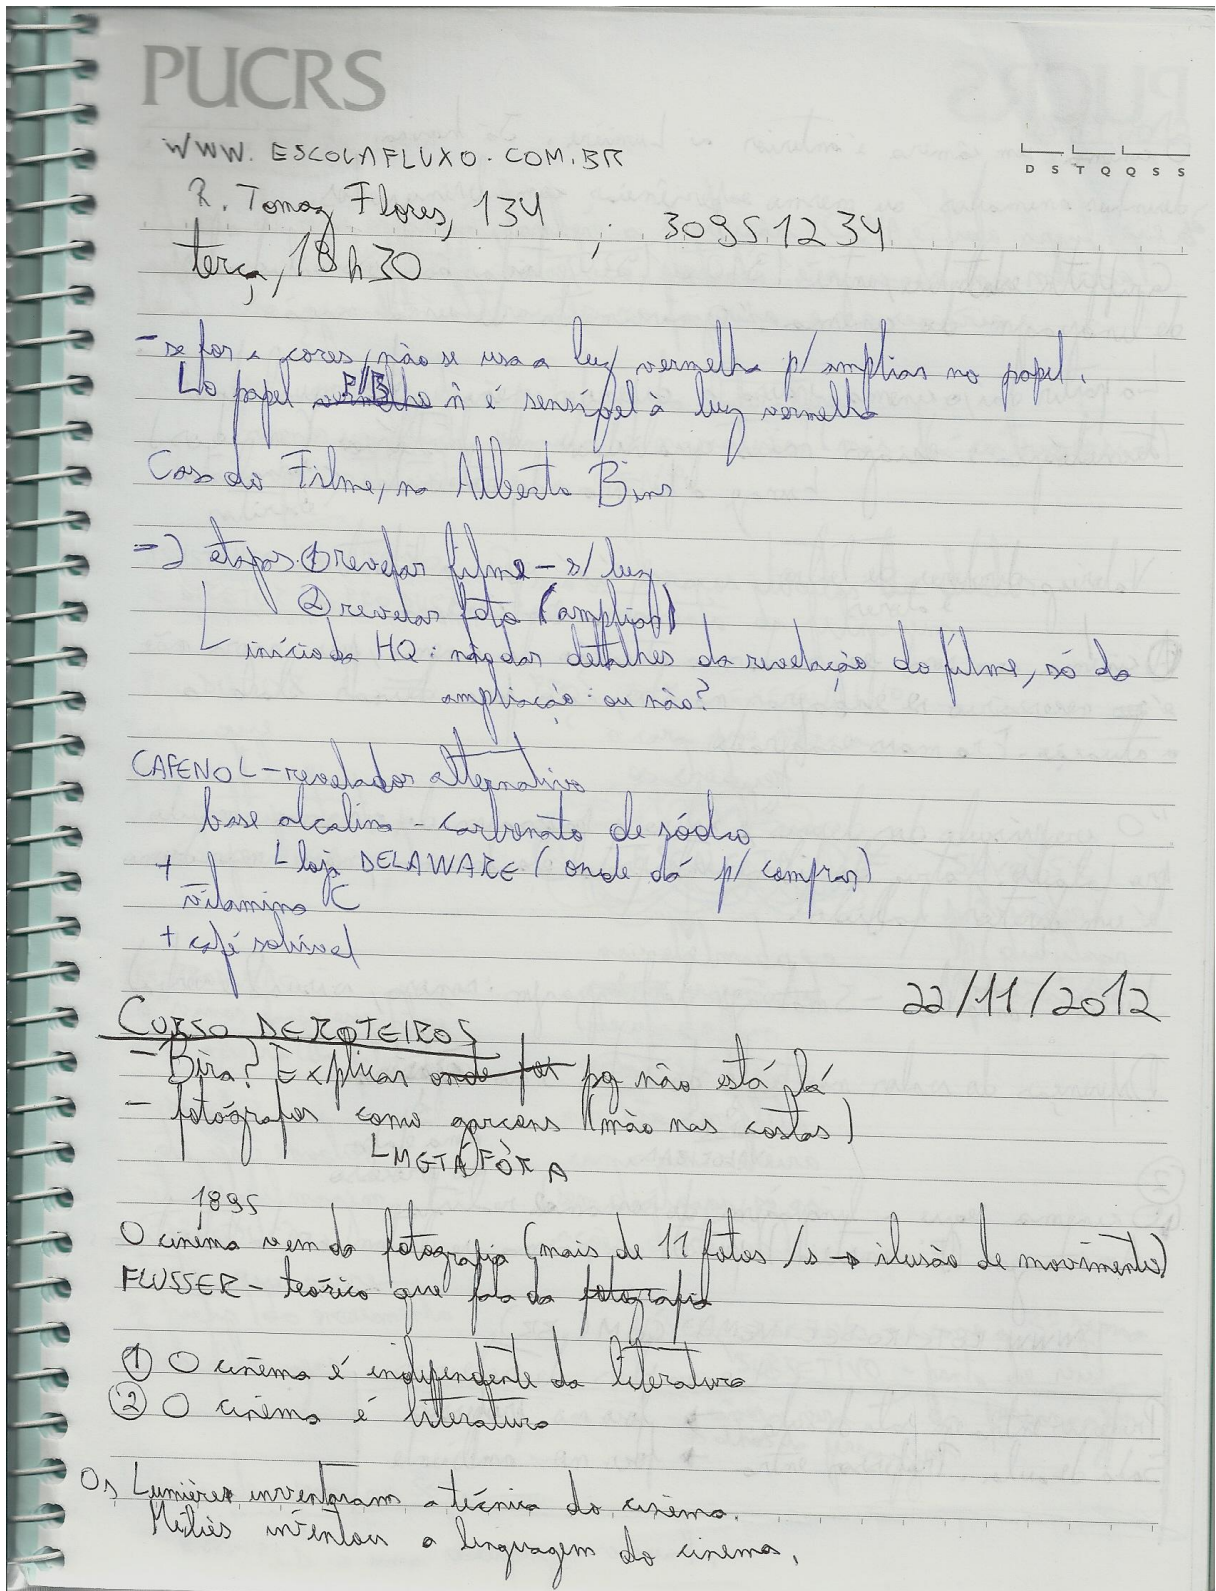 PUCRS
WWW.ESCOLAFLUXO.COM.BR
D S T Q Q S S
R. Tomaz Flores, 134 ; 30951234
terça, 18h30
- se for a cores, não se usa a luz vermelha p/ ampliar no papel.
L o papel vermelho P/B ñ é sensível à luz vermelha
Casa do Filme, na Alberto Bins
- 2 etapas: ① revelar filme - s/ luz
② revelar foto (ampliar)
L início da HQ: não dar detalhes da revelação do filme, só da
ampliação: ou não?
CAFENOL - revelador alternativo
base alcalina - carbonato de sódio
+ L loja DELAWARE (onde dá p/ comprar)
vitamina C
+ café solúvel
22/11/2012
CURSO DE ROTEIROS
- Bira? Explicar onde foi pq não está lá
- fotógrafos como garçons (mão nas costas)
L METÁFORA
1895
O cinema vem da fotografia (mais de 11 fotos /s → ilusão de movimento)
FLUSSER - teórico que fala da fotografia
① O cinema é independente da literatura
② O cinema é literatura
Os Lumières inventaram a técnica do cinema.
Méliès inventou a linguagem do cinema.